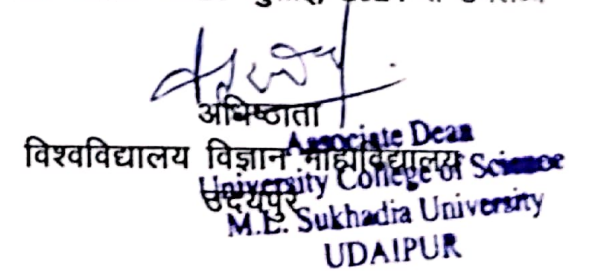 अधिष्ठाता
विश्वविद्यालय विज्ञान महाविद्यालय
उदयपुर
Associate Dean
University College of Science
M.L. Sukhadia University
UDAIPUR